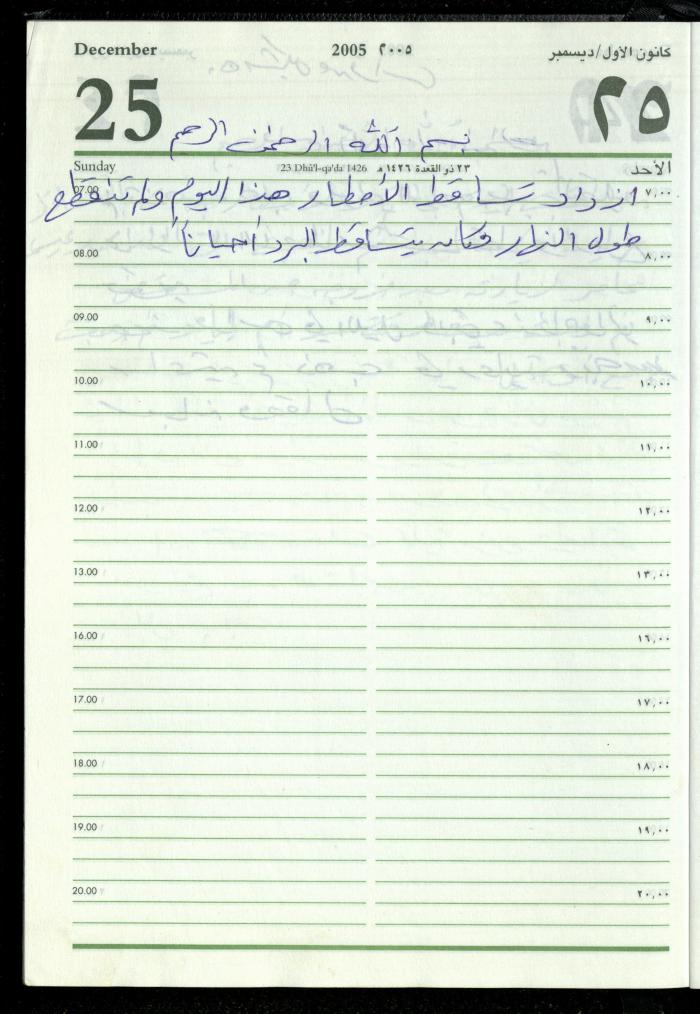 December 2005 ٢٠٠٥ كانون الأول/ديسمبر
25 ٢٥
بسم الله الرحمن الرحيم
Sunday 23 Dhū'l-qa'da 1426 ٢٣ ذو القعدة ١٤٢٦ هـ الأحد
ازداد تساقط الأمطار هذا اليوم ولم تنقطع
07.00 ٧,٠٠
طول النهار وكان يتساقط البرد أحياناً
08.00 ٨,٠٠
09.00 ٩,٠٠
10.00 ١٠,٠٠
11.00 ١١,٠٠
12.00 ١٢,٠٠
13.00 ١٣,٠٠
16.00 ١٦,٠٠
17.00 ١٧,٠٠
18.00 ١٨,٠٠
19.00 ١٩,٠٠
20.00 ٢٠,٠٠